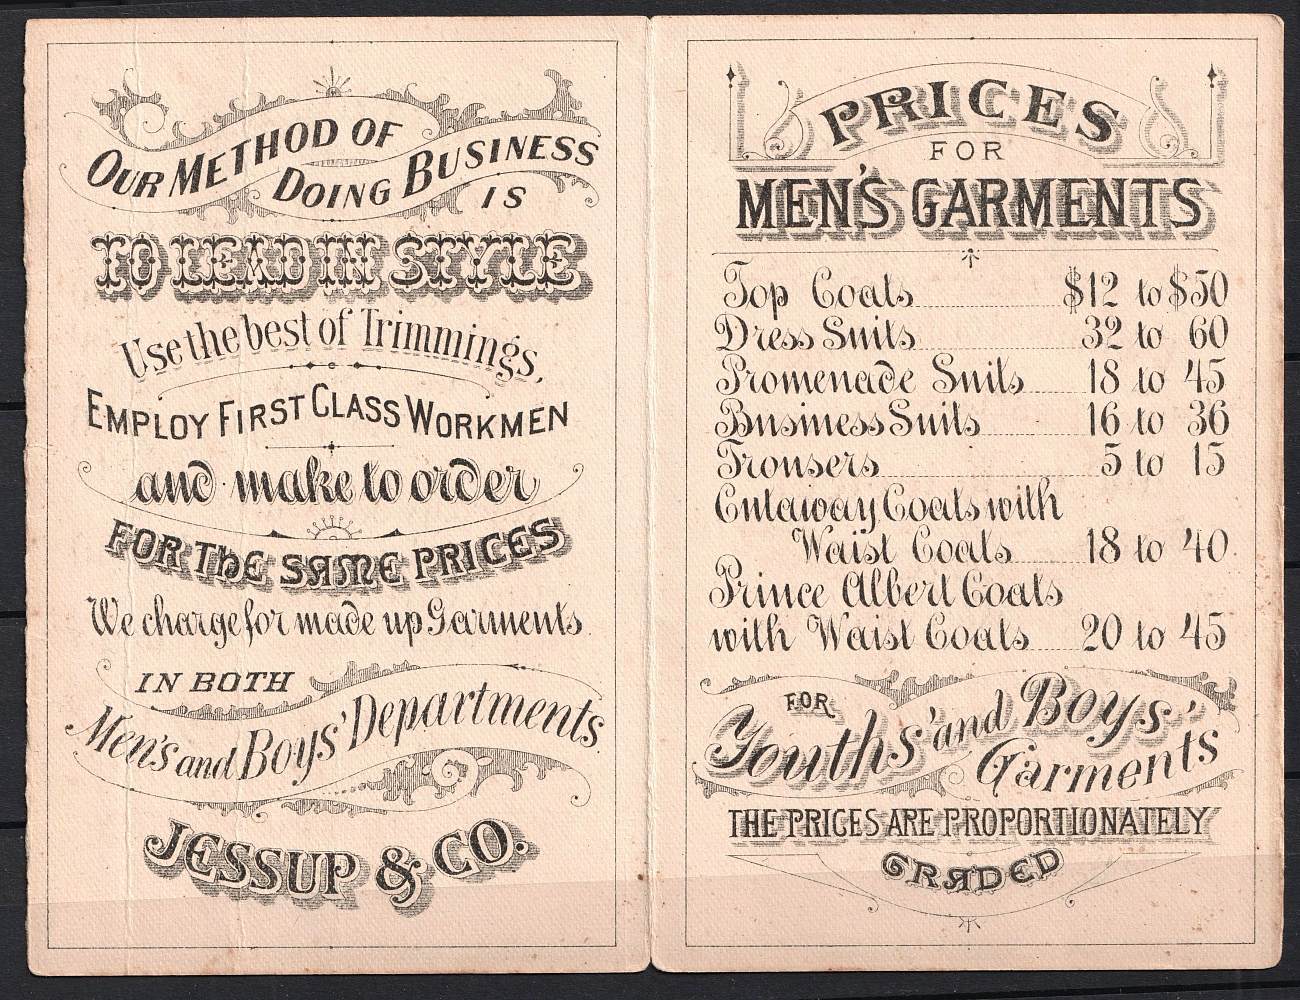 OUR METHOD OF
DOING BUSINESS
IS
TO LEAD IN STYLE
Use the best of Trimmings,
EMPLOY FIRST CLASS WORKMEN
and make to order
FOR THE SAME PRICES
We charge for made up Garments.
IN BOTH
Men's and Boys' Departments.
JESSUP & CO.
PRICES
FOR
MEN'S GARMENTS
Top Coats $12 to $50
Dress Suits 32 to 60
Promenade Suits 18 to 45
Business Suits 16 to 36
Trousers 5 to 15
Cutaway Coats with
Waist Coats 18 to 40.
Prince Albert Coats
with Waist Coats 20 to 45
FOR
Youths' and Boys'
Garments
THE PRICES ARE PROPORTIONATELY
GRADED